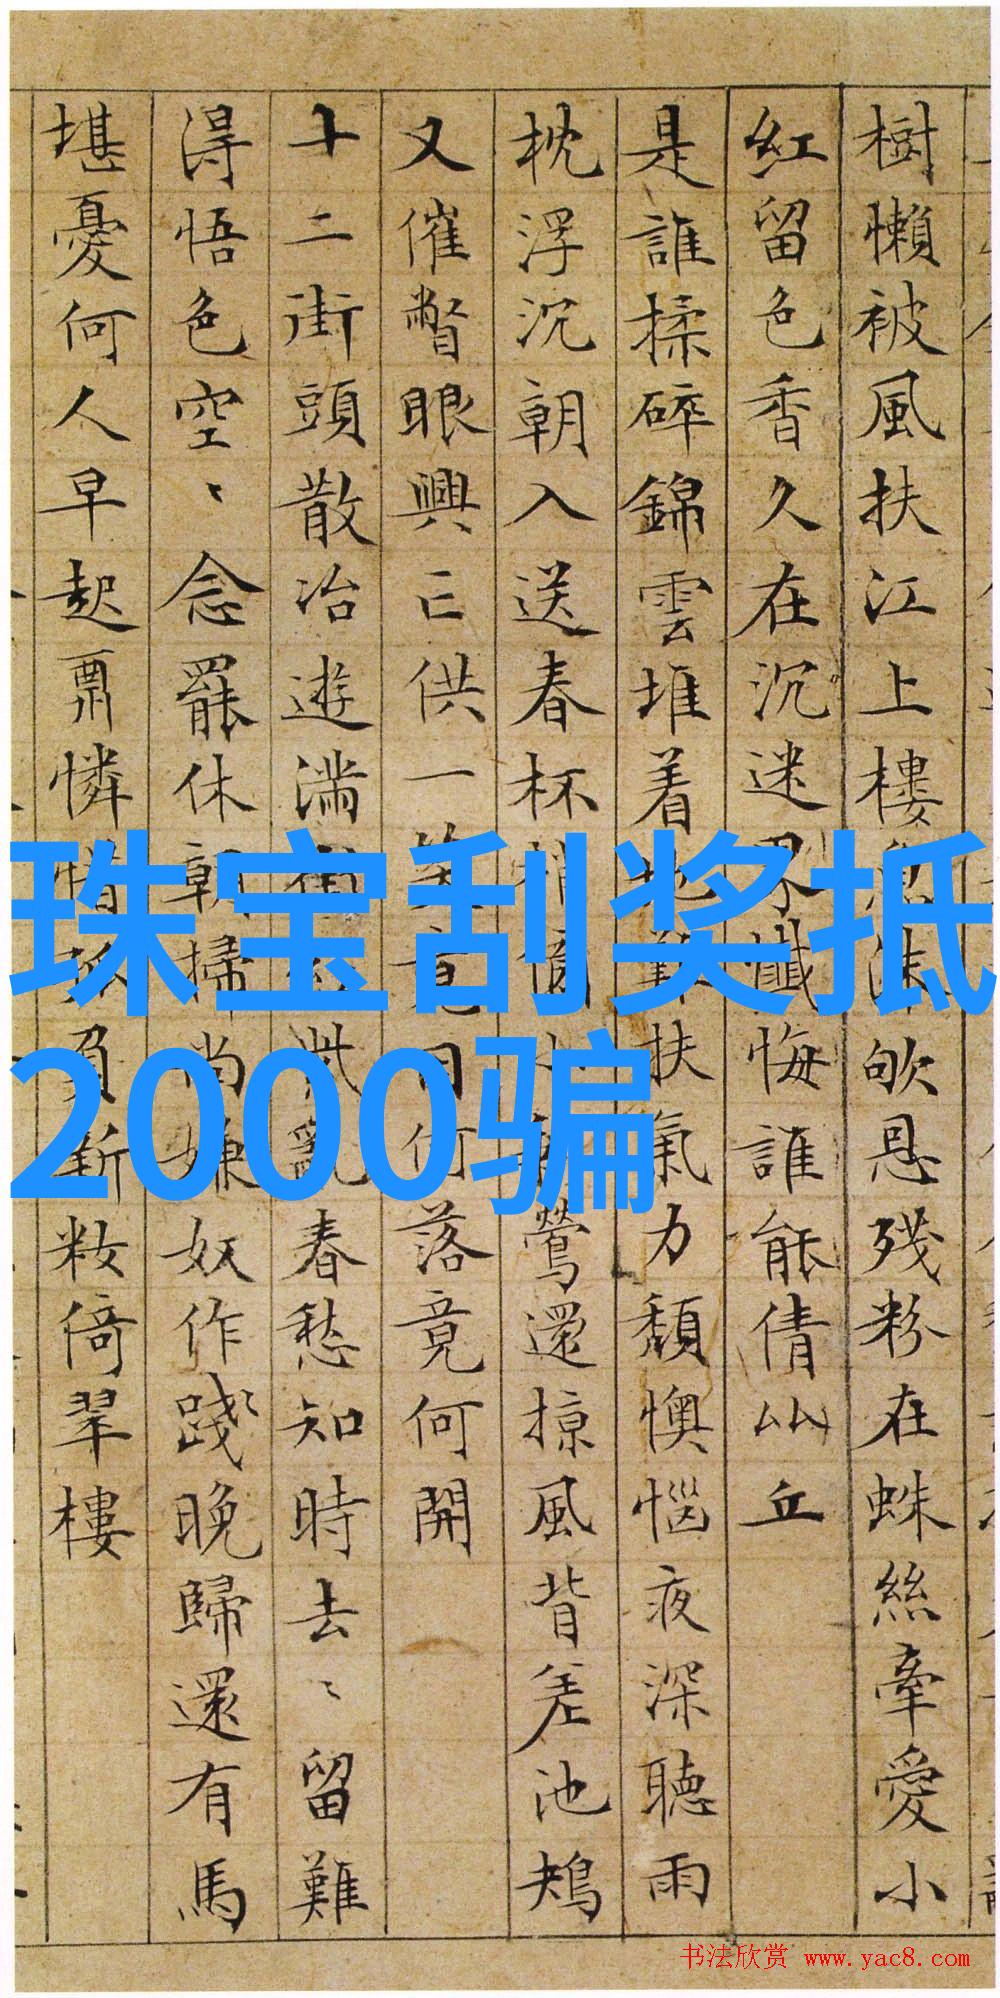 樹懶被風扶江上樓欹恩殘粉在蛛絲牽愛小
紅留色香久在沉迷界懺悔誰能倩比丘
是誰揉碎錦雲堆着扶氣力頹懊惱夜深聽雨
枕浮沉朝入送春杯鶯還掠風背差池鴂
又催瞥眼興亡供一笑竟何落竟何開
十二街頭散冶遊滿亂春愁知時去〻留難
得悟色空〻念罷休朝掃尚嫌奴作踐〻晚歸還有馬
堪憂何人早起票憐惜孤負新妝倚翠樓
珠宝刮奖抵
2000骗
书法欣赏 www.yac8.com